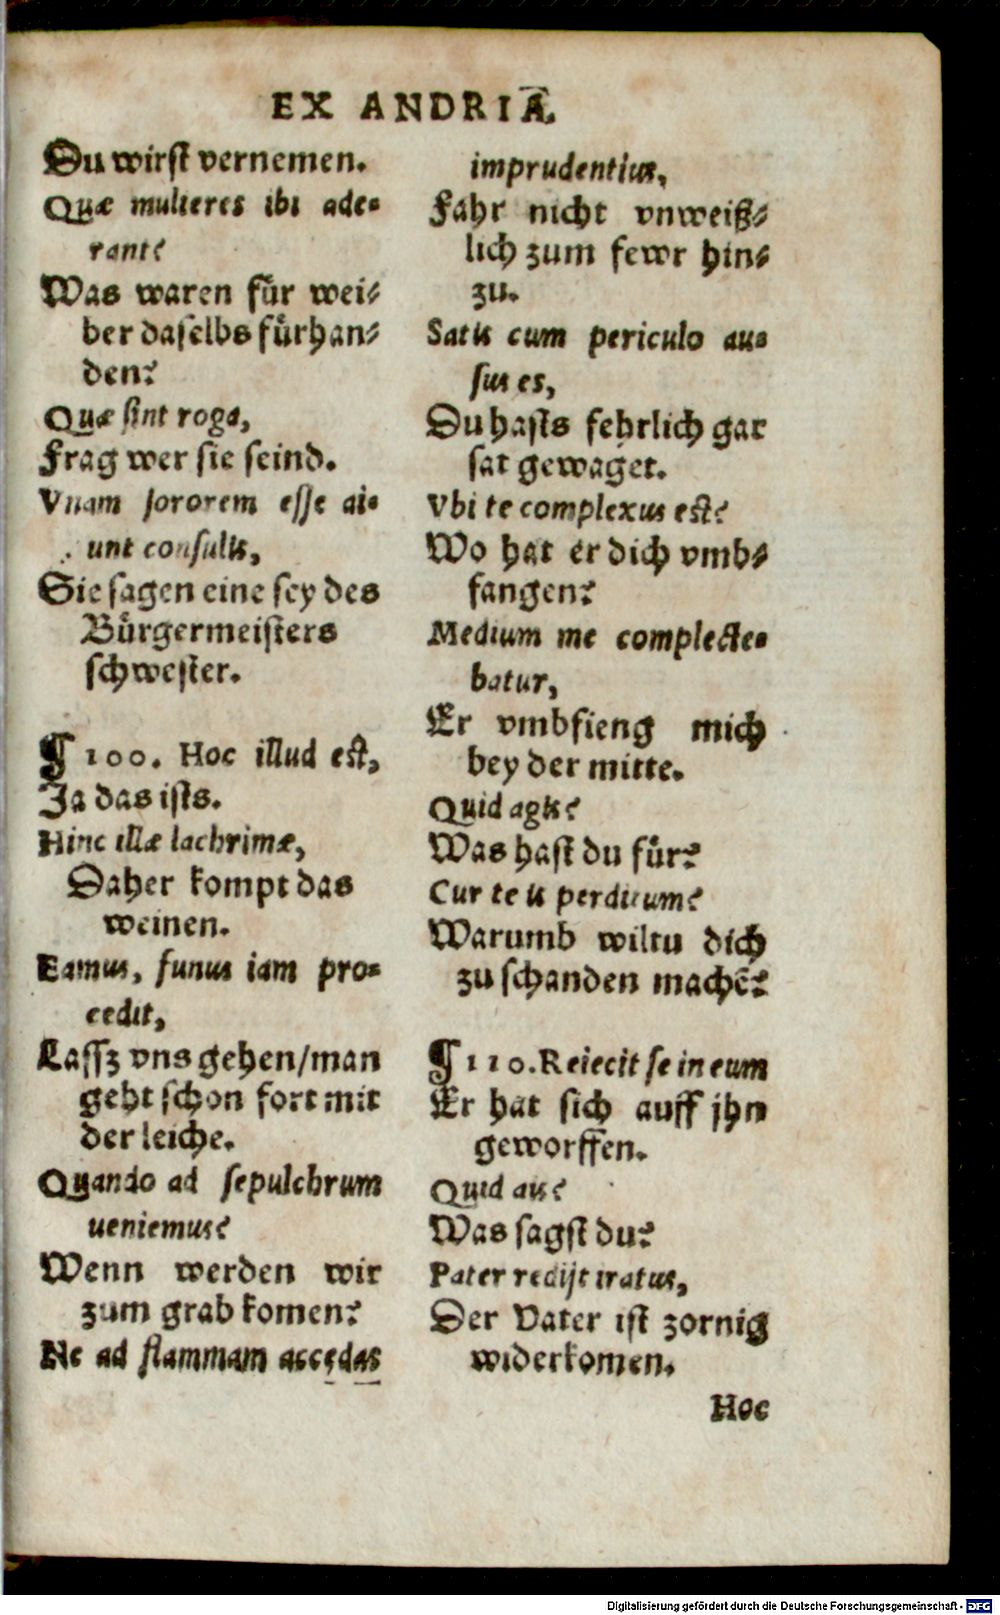 EX ANDRIA.
Du wirst vernemen.
Quæ mulieres ibi ade-
rant?
Was waren für wei-
ber daselbs fürhan-
den?
Quæ sint roga,
Frag wer sie seind.
Vnam sororem esse ai-
unt consulis,
Sie sagen eine sey des
Bürgermeisters
schwester.
¶ 100. Hoc illud est,
Ja das ists.
Hinc illæ lachrimæ,
Daher kompt das
weinen.
Eamus, funus iam pro-
cedit,
Lassz vns gehen/man
geht schon fort mit
der leiche.
Quando ad sepulchrum
ueniemus?
Wenn werden wir
zum grab komen?
Ne ad flammam accedas
imprudentius,
Fahr nicht vnweiß-
lich zum fewr hin-
zu.
Satis cum periculo au-
sus es,
Du hasts fehrlich gar
sat gewaget.
Vbi te complexus est?
Wo hat er dich vmb-
fangen?
Medium me complecte-
batur,
Er vmbfieng mich
bey der mitte.
Quid agis?
Was hast du für?
Cur te is perditum?
Warumb wiltu dich
zu schanden machē?
¶ 110. Reiecit se in eum
Er hat sich auff jhn
geworffen.
Quid ais?
Was sagst du?
Pater redijt iratus,
Der Vater ist zornig
widerkomen.
Hoc
Digitalisierung gefördert durch die Deutsche Forschungsgemeinschaft - DFG